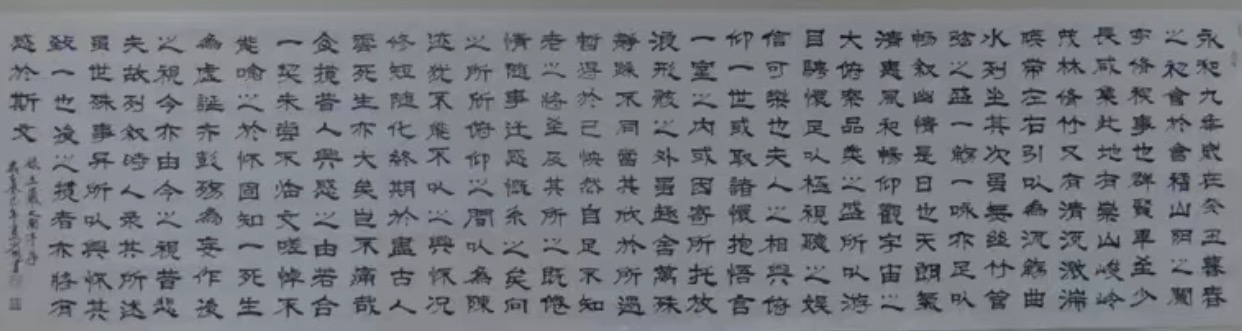 永和九年歲在癸丑暮春
之初會於會稽山陰之蘭
亭修禊事也群賢畢至少
長咸集此地有崇山峻嶺
茂林修竹又有清流激湍
暎帶左右引以為流觴曲
水列坐其次虽無絲竹管
弦之盛一觴一咏亦足以
暢叙幽情是日也天朗氣
清惠風和暢仰觀宇宙之
大俯察品類之盛所以游
目騁懷足以極視聽之娛
信可樂也夫人之相與俯
仰一世或取諸懷抱悟言
一室之內或因寄所托放
浪形骸之外虽趣舍萬殊
靜躁不同當其欣於所遇
暫得於己怏然自足不知
老之將至及其所之既倦
情隨事迁感慨系之矣向
之所欣俯仰之間以為陳
迹犹不能不以之興怀况
修短隨化終期於盡古人
雲死生亦大矣豈不痛哉
每攬昔人興感之由若合
一契未嘗不临文嗟悼不
能喻之於怀固知一死生
為虛誕齊彭殤為妄作後
之視今亦由今之視昔悲
夫故列叙時人录其所述
虽世殊事异所以興怀其
致一也後之攬者亦將有
感於斯文